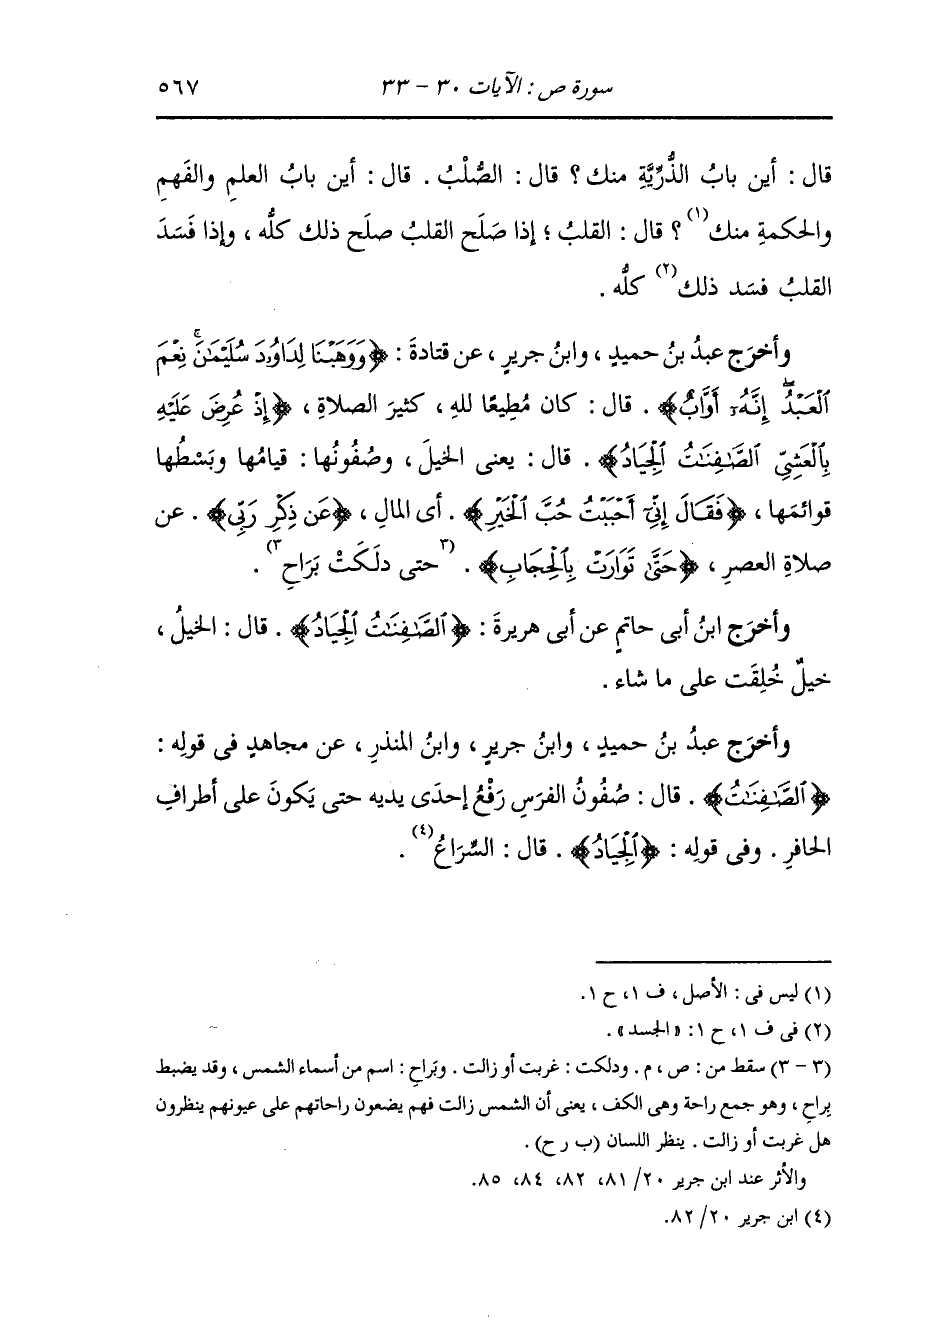 سورة ص : الآيات ٣٠ - ٣٣ ٥٦٧
قال : أين بابُ الذُّرِّيَّةِ منك ؟ قال : الصُّلْبُ . قال : أين بابُ العلمِ والفَهمِ
والحكمةِ منك(١) ؟ قال : القلبُ ؛ إذا صَلَح القلبُ صلَح ذلك كلُّه ، وإذا فَسَدَ
القلبُ فسَد ذلك(٢) كلُّه .
وأخرَج عبدُ بنُ حميدٍ ، وابنُ جريرٍ ، عن قتادةَ : ﴿وَوَهَبْنَا لِدَاوُۥدَ سُلَيْمَٰنَۚ نِعْمَ
ٱلْعَبْدُۖ إِنَّهُۥٓ أَوَّابٌ﴾ . قال : كان مُطِيعًا للهِ ، كثيرَ الصلاةِ ، ﴿إِذْ عُرِضَ عَلَيْهِ
بِٱلْعَشِيِّ ٱلصَّٰفِنَٰتُ ٱلْجِيَادُ﴾ . قال : يعنى الخيلَ ، وصُفُونُها : قيامُها وبَسْطُها
قوائمَها ، ﴿فَقَالَ إِنِّىٓ أَحْبَبْتُ حُبَّ ٱلْخَيْرِ﴾ . أى المالِ ، ﴿عَن ذِكْرِ رَبِّى﴾ . عن
صلاةِ العصرِ ، ﴿حَتَّىٰ تَوَارَتْ بِٱلْحِجَابِ﴾ . (٣حتى دلَكَتْ بَرَاحِ٣) .
وأخرَج ابنُ أبى حاتمٍ عن أبى هريرةَ : ﴿ٱلصَّٰفِنَٰتُ ٱلْجِيَادُ﴾ . قال : الخيلُ ،
خيلٌ خُلِقَت على ما شاء .
وأخرَج عبدُ بنُ حميدٍ ، وابنُ جريرٍ ، وابنُ المنذرِ ، عن مجاهدٍ فى قولِه :
﴿ٱلصَّٰفِنَٰتُ﴾ . قال : صُفُونُ الفرَسِ رَفْعُ إحدَى يديه حتى يَكونَ على أطرافِ
الحافرِ . وفى قولِه : ﴿ٱلْجِيَادُ﴾ . قال : السِّرَاعُ(٤) .
(١) ليس فى : الأصل ، ف ١، ح ١.
(٢) فى ف ١، ح ١: «الجسد» .
(٣ - ٣) سقط من : ص ، م . ودلكت : غربت أو زالت . وبَراحِ : اسم من أسماء الشمس ، وقد يضبط
بِراحٍ ، وهو جمع راحة وهى الكف ، يعنى أن الشمس زالت فهم يضعون راحاتهم على عيونهم ينظرون
هل غربت أو زالت . ينظر اللسان (ب ر ح) .
والأثر عند ابن جرير ٢٠/ ٨١، ٨٢، ٨٤، ٨٥.
(٤) ابن جرير ٢٠/ ٨٢.